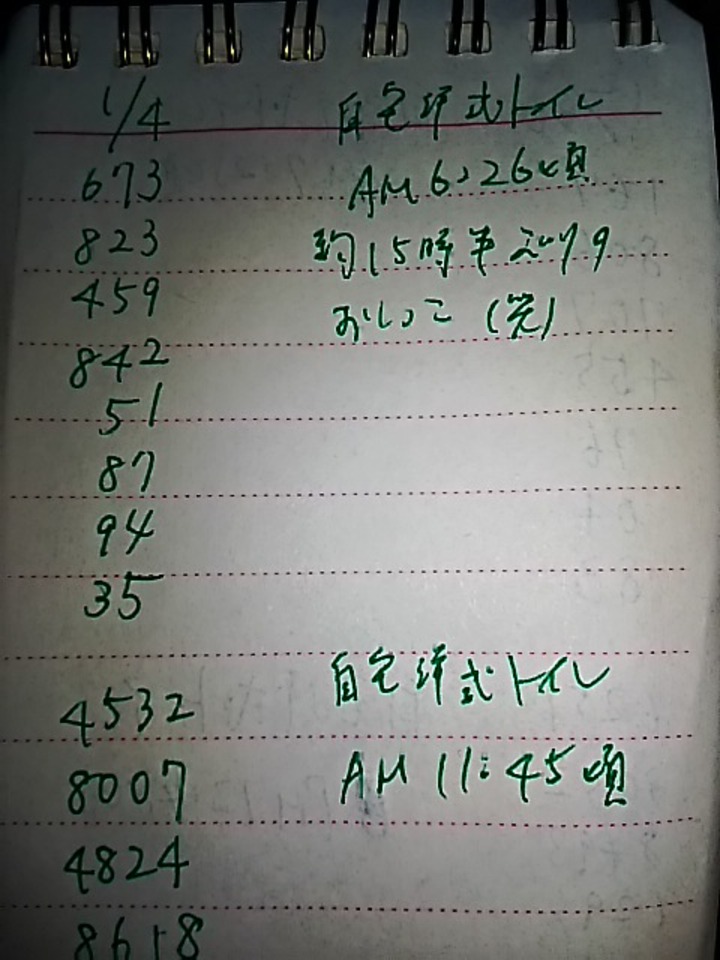 1/4 自宅洋式トイレ
673 AM6:26頃
823 約15時半ころ
459 おしっこ (笑)
842
51
87
94
35
自宅洋式トイレ
4532
8007 AM 11:45頃
4824
8618